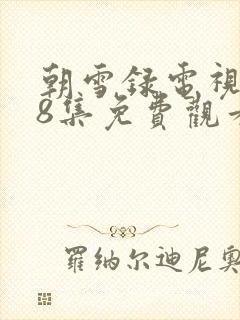 朝雪録電視
8集免費觀
羅纳尔迪尼奥